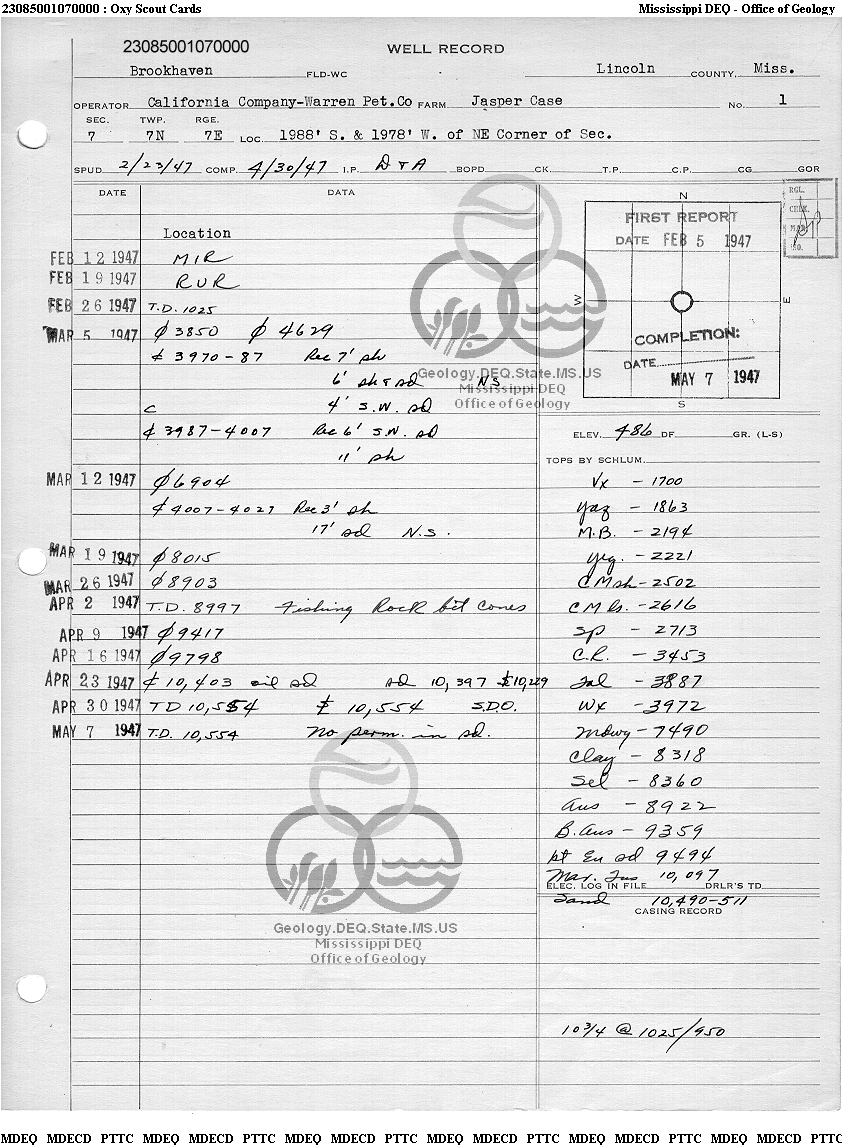 23085001070000 : Oxy Scout Cards Mississippi DEQ - Office of Geology
23085001070000
WELL RECORD
Brookhaven FLD-WC Lincoln COUNTY, Miss.
OPERATOR California Company-Warren Pet.Co FARM Jasper Case No. 1
SEC. TWP. RGE.
7 7N 7E LOC. 1988' S. & 1978' W. of NE Corner of Sec.
SPUD 2/23/47 COMP. 4/30/47 I.P. D & A BOPD CK. T.P. C.P. CG GOR
DATE DATA
Location
FEB 12 1947 MIR
FEB 19 1947 RUR
FEB 26 1947 T.D. 1025
MAR 5 1947 ϕ 3850 ϕ 4629
¢ 3970-87 Rec 7' sh
6' sh & sd NS
C 4' S.W. sd
¢ 3987-4007 Rec 6' S.W. sd
11' sh
MAR 12 1947 ϕ 6904
¢ 4007-4027 Rec 3' sh
17' sd N.S.
MAR 19 1947 ϕ 8015
MAR 26 1947 ϕ 8903
APR 2 1947 T.D. 8997 Fishing Rock bit cones
APR 9 1947 ϕ 9417
APR 16 1947 ϕ 9798
APR 23 1947 ¢ 10,403 oil sd sd 10,397
APR 30 1947 TD 10,554 10,554 S.D.O.
MAY 7 1947 T.D. 10,554 No perm. in sd.
N
RGL.
CHK.
MAP
NO.
FIRST REPORT
DATE FEB 5 1947
W E
COMPLETION:
DATE
MAY 7 1947
S
ELEV. 486 DF. GR. (L-S)
TOPS BY SCHLUM.
Vx - 1700
Yaz - 1863
M.B. - 2194
Yeg. - 2221
CMsh - 2502
CMls. - 2616
Sp - 2713
C.R. - 3453
Sal - 3887
Wx - 3972
Mdwy - 7490
Clay - 8318
Sel - 8360
Aus - 8922
B.Aus - 9359
pt Eu sd 9494
Mar. Tus 10,097
ELEC. LOG IN FILE DRLR'S TD
Sand 10,490-511
CASING RECORD
10 3/4 @ 1025/950
Geology.DEQ.State.MS.US
Mississippi DEQ
Office of Geology
Geology.DEQ.State.MS.US
Mississippi DEQ
Office of Geology
MDEQ MDECD PTTC MDEQ MDECD PTTC MDEQ MDECD PTTC MDEQ MDECD PTTC MDEQ MDECD PTTC MDEQ MDECD PTTC